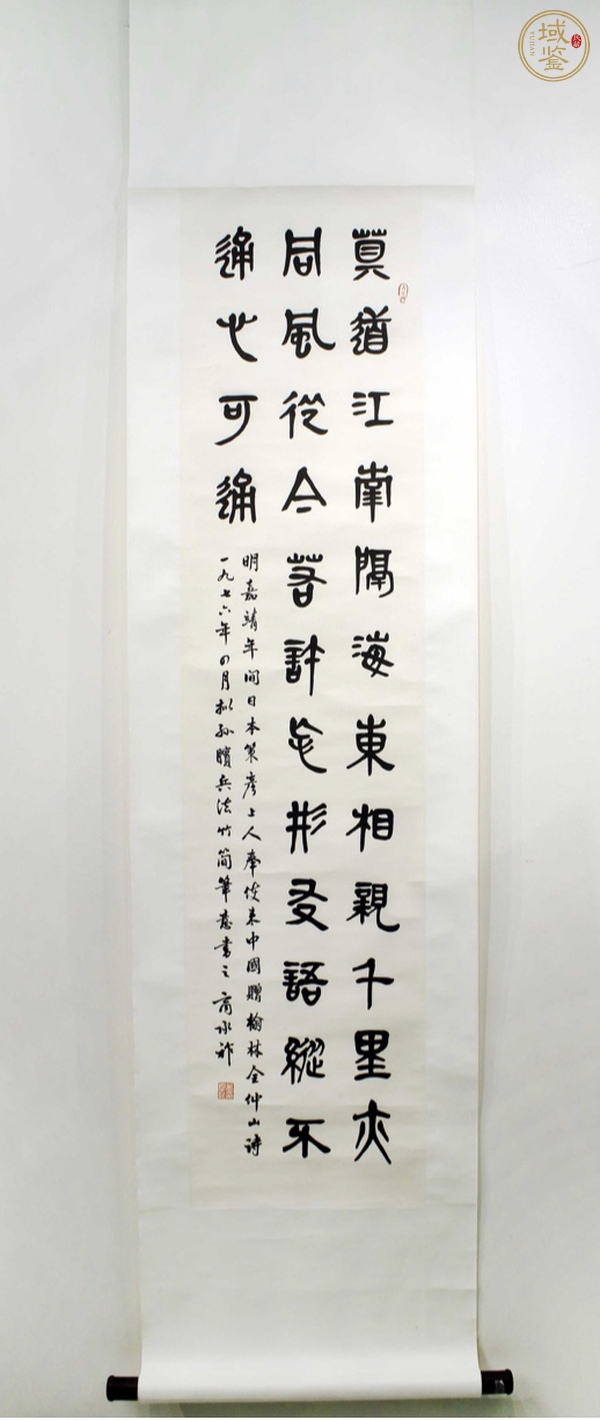 域鉴
莫道江南隔海東相親千里亦
同風從今若許忘形友語縱不
通心可通
明嘉靖年间日本策彦上人奉使来中國贈翰林全仲山诗
一九七六年四月拟孙臏兵法竹简筆意書之 商承祚